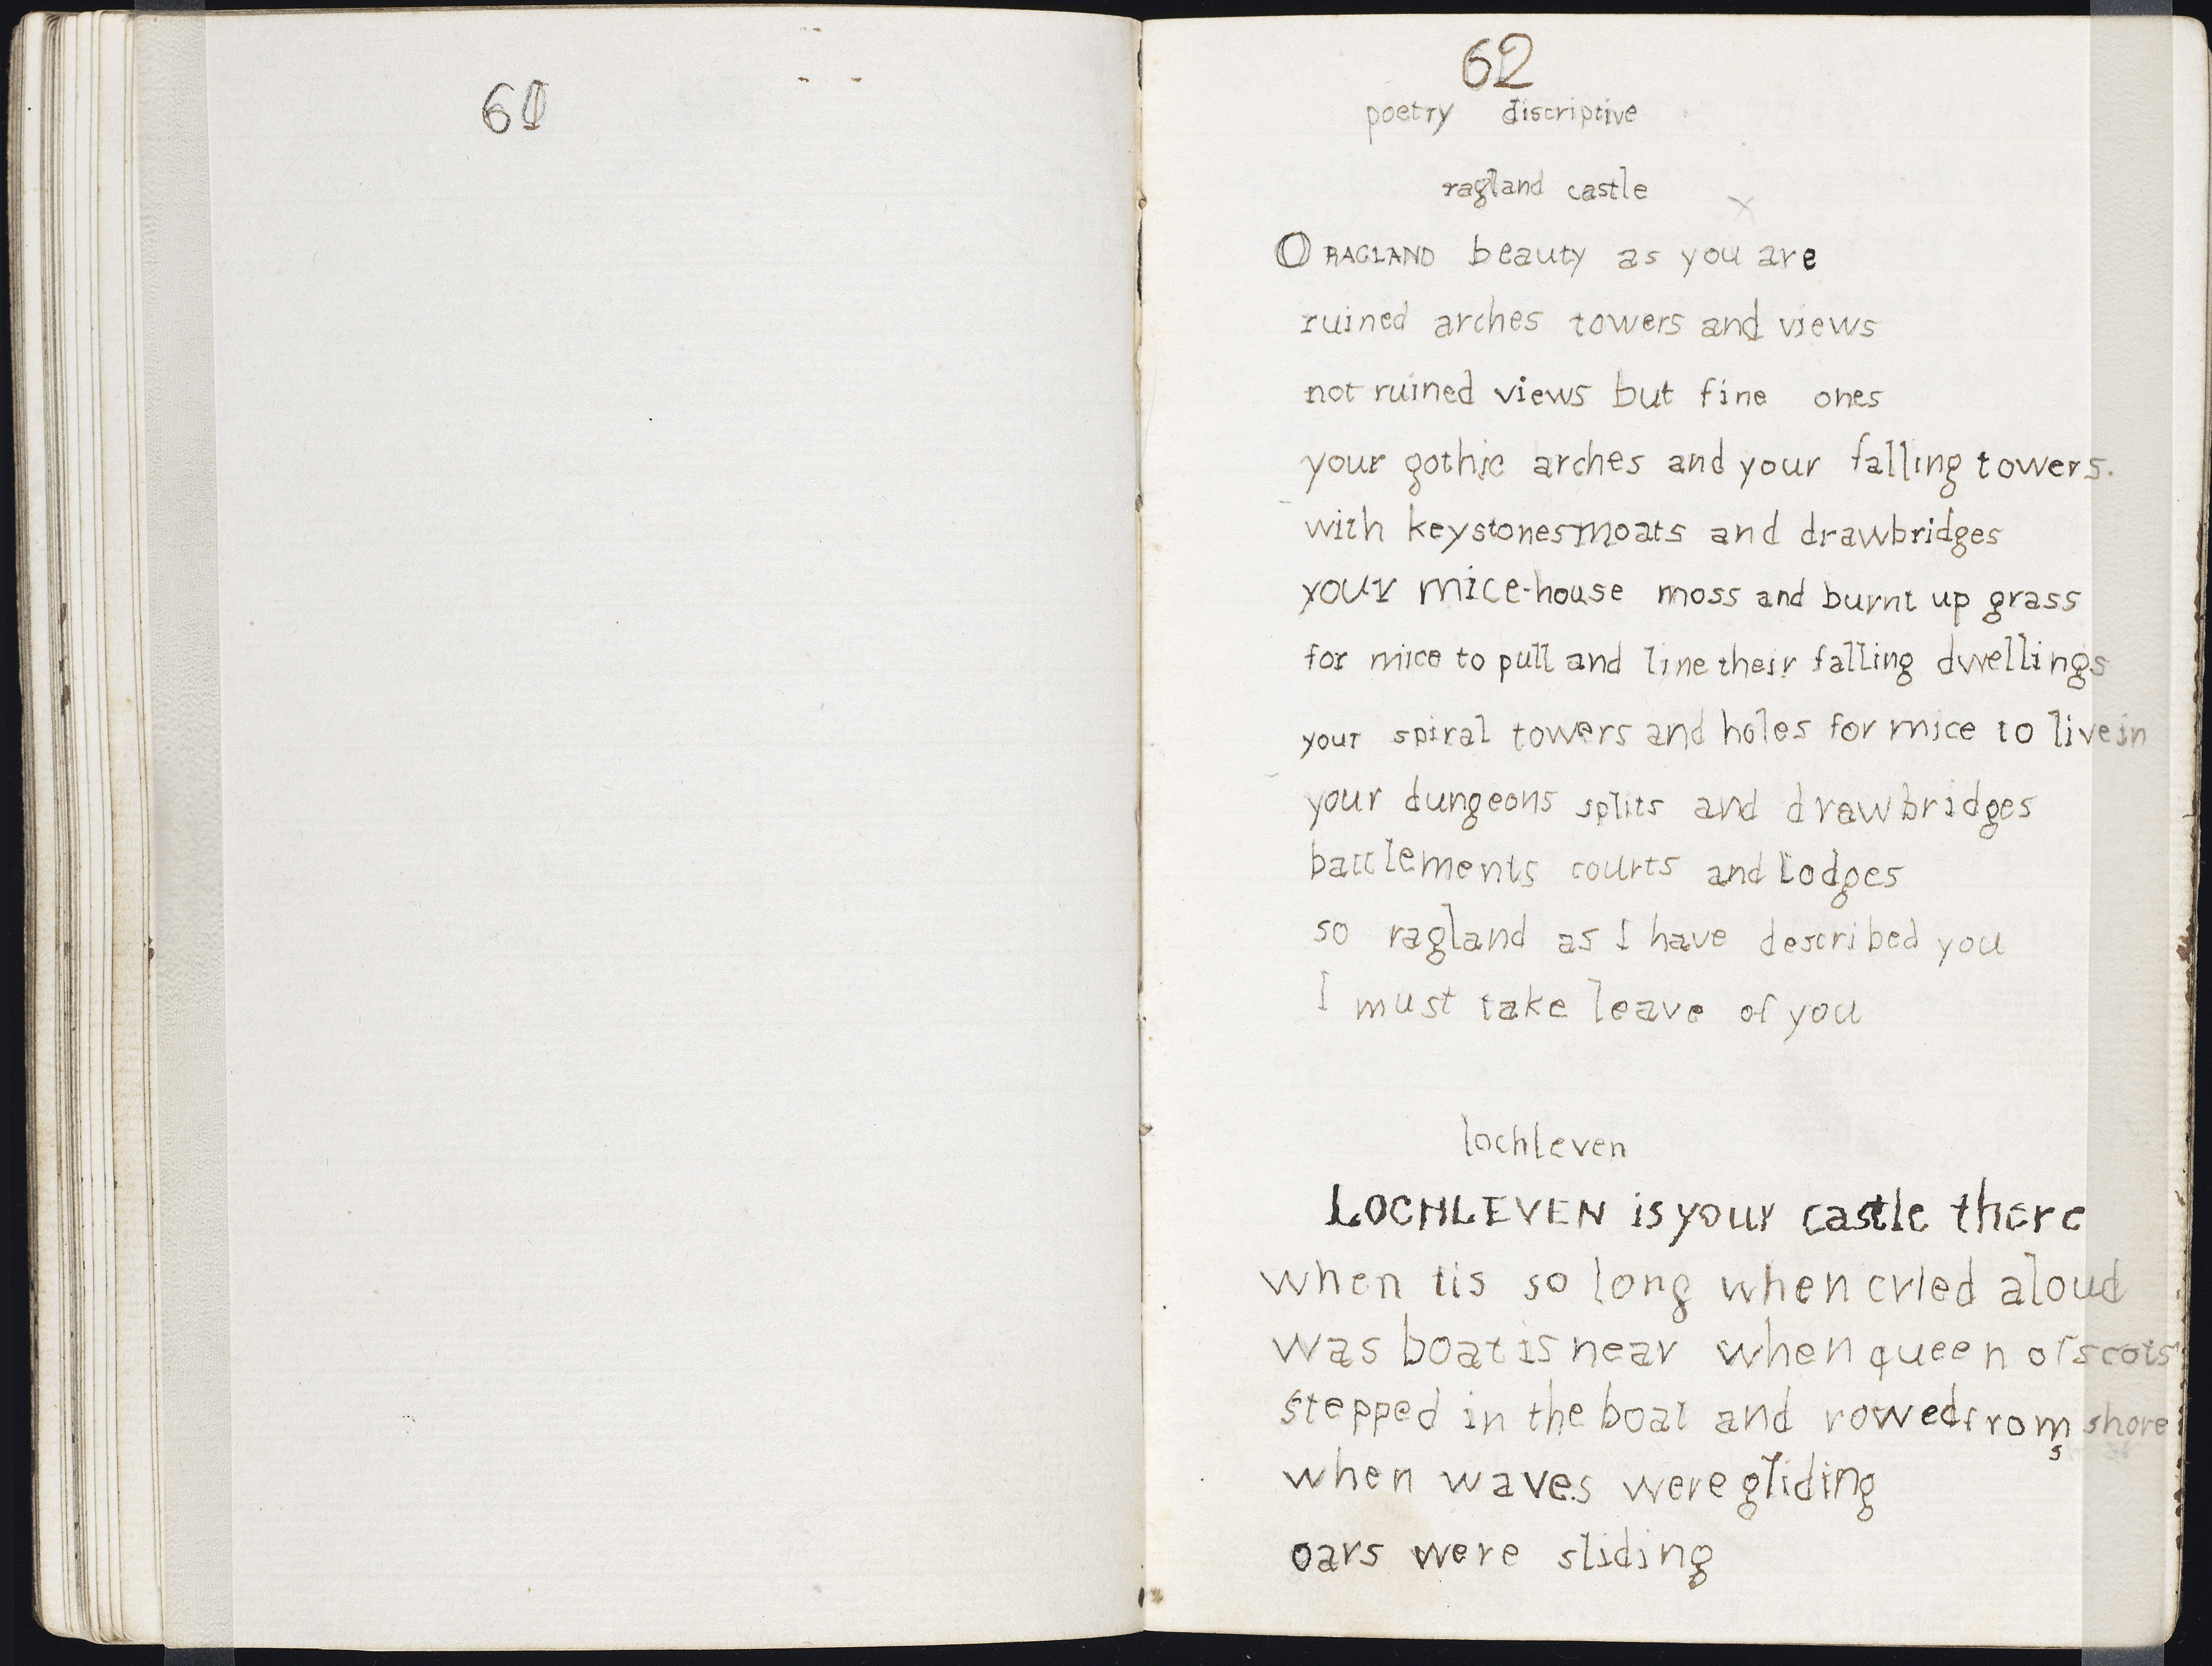 61
62
poetry discriptive
ragland castle
O RAGLAND beauty as you are
ruined arches towers and views
not ruined views but fine ones
your gothic arches and your falling towers.
with keystones moats and drawbridges
your mice-house moss and burnt up grass
for mice to pull and line their falling dwellings
your spiral towers and holes for mice to live in
your dungeons splits and drawbridges
battlements courts and lodges
so ragland as I have described you
I must take leave of you
lochleven
LOCHLEVEN is your castle there
when tis so long when cried aloud
was boat is near when queen of scots
stepped in the boat and rowed from shore
s
when waves were gliding
oars were sliding